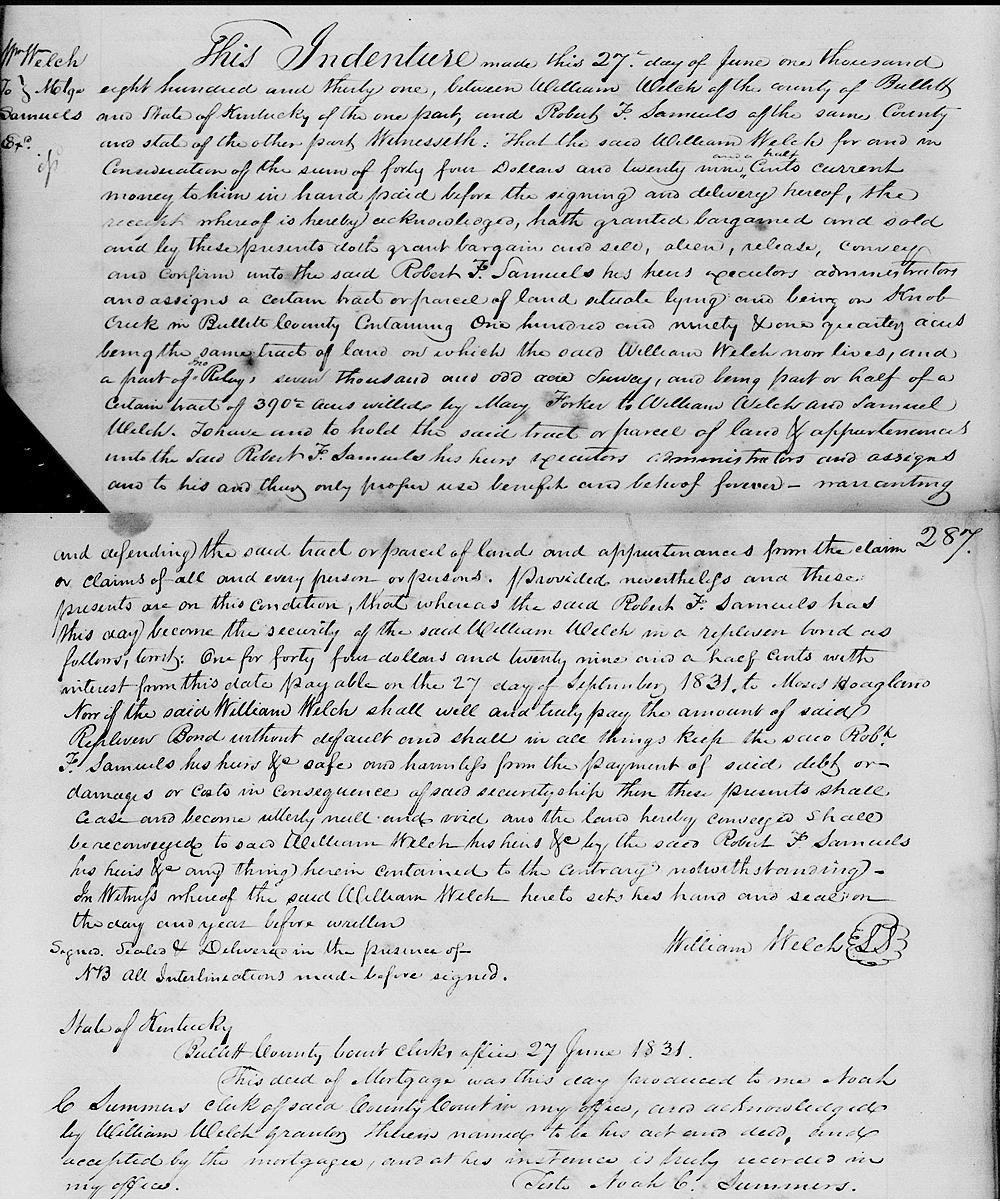 Wm Welch
To } Mtge
Samuels
Exd.
This Indenture made this 27th day of June one thousand
eight hundred and thirty one, between William Welch of the county of Bullitt
and State of Kentucky of the one part, and Robert F. Samuels of the same County
and state of the other part Witnesseth: That the said William Welch for and in
Consideration of the sum of forty four Dollars and twenty nine and a half Cents current
money to him in hand paid before the signing and delivery hereof, the
receipt whereof is hereby acknowledged, hath granted bargained and sold
and by these presents doth grant bargain and sell, alien, release, convey
and Confirm unto the said Robert F. Samuels his heirs executors administrators
and assigns a certain tract or parcel of land situate lying and being on Knob
Creek in Bullitt County Containing One hundred and ninety & one quarter acres
being the same tract of land on which the said William Welch now lives, and
a part of Jno Rileys seven thousand and odd acre Survey, and being part or half of a
Certain tract of 390½ acres willed by Mary Forker to William Welch and Samuel
Welch. To have and to hold the said tract or parcel of land & appurtenances
unto the said Robert F. Samuels his heirs executors administrators and assigns
and to his and their only proper use benefit and behoof forever – warranting
287.
and defending the said tract or parcel of land and appurtenances from the claim
or claims of all and every person or persons. Provided nevertheless and these
presents are on this condition, that whereas the said Robert F. Samuels has
this day become the security of the said William Welch in a replevin bond as
follows, towit: One for forty four dollars and twenty nine and a half Cents with
interest from this date payable on the 27 day of September 1831. to Moses Hoagland
Now if the said William Welch shall well and truly pay the amount of said
Replevin Bond without default and shall in all things keep the said Robt
F. Samuels his heirs &c safe and harmless from the payment of said debt or
damages or costs in consequence of said securityship then these presents shall
cease and become utterly null and void and the land hereby conveyed shall
be reconveyed to said William Welch his heirs &c by the said Robert F Samuels
his heirs &c any thing herein contained to the contrary notwithstanding –
In Witness whereof the said William Welch hereto sets his hand and seal on
the day and year before written
Signed. Sealed & Delivered in the presence of –
William Welch LS
NB All Interlineations made before signed.
State of Kentucky
Bullitt County Court Clerks office 27 June 1831.
This deed of Mortgage was this day produced to me Noah
C Summers clerk of said County Court in my office, and acknowledged
by William Welch grantor therein named to be his act and deed, and
accepted by the mortgagee, and at his instance is truly recorded in
my office. Teste Noah C. Summers.